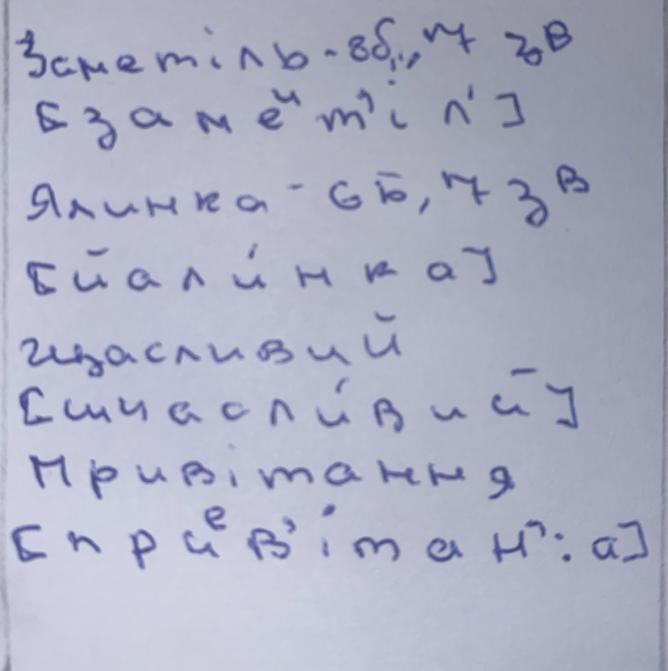 Заметіль - 8б., 7 зв
[з а м еᶦ т' і л']
Ялинка - 6б, 7 зв
[й а л и́ н к а]
Щасливий
[ш ч а с л и́ в и й]
Привітання
[п р иᵉ в' і т а н': а]